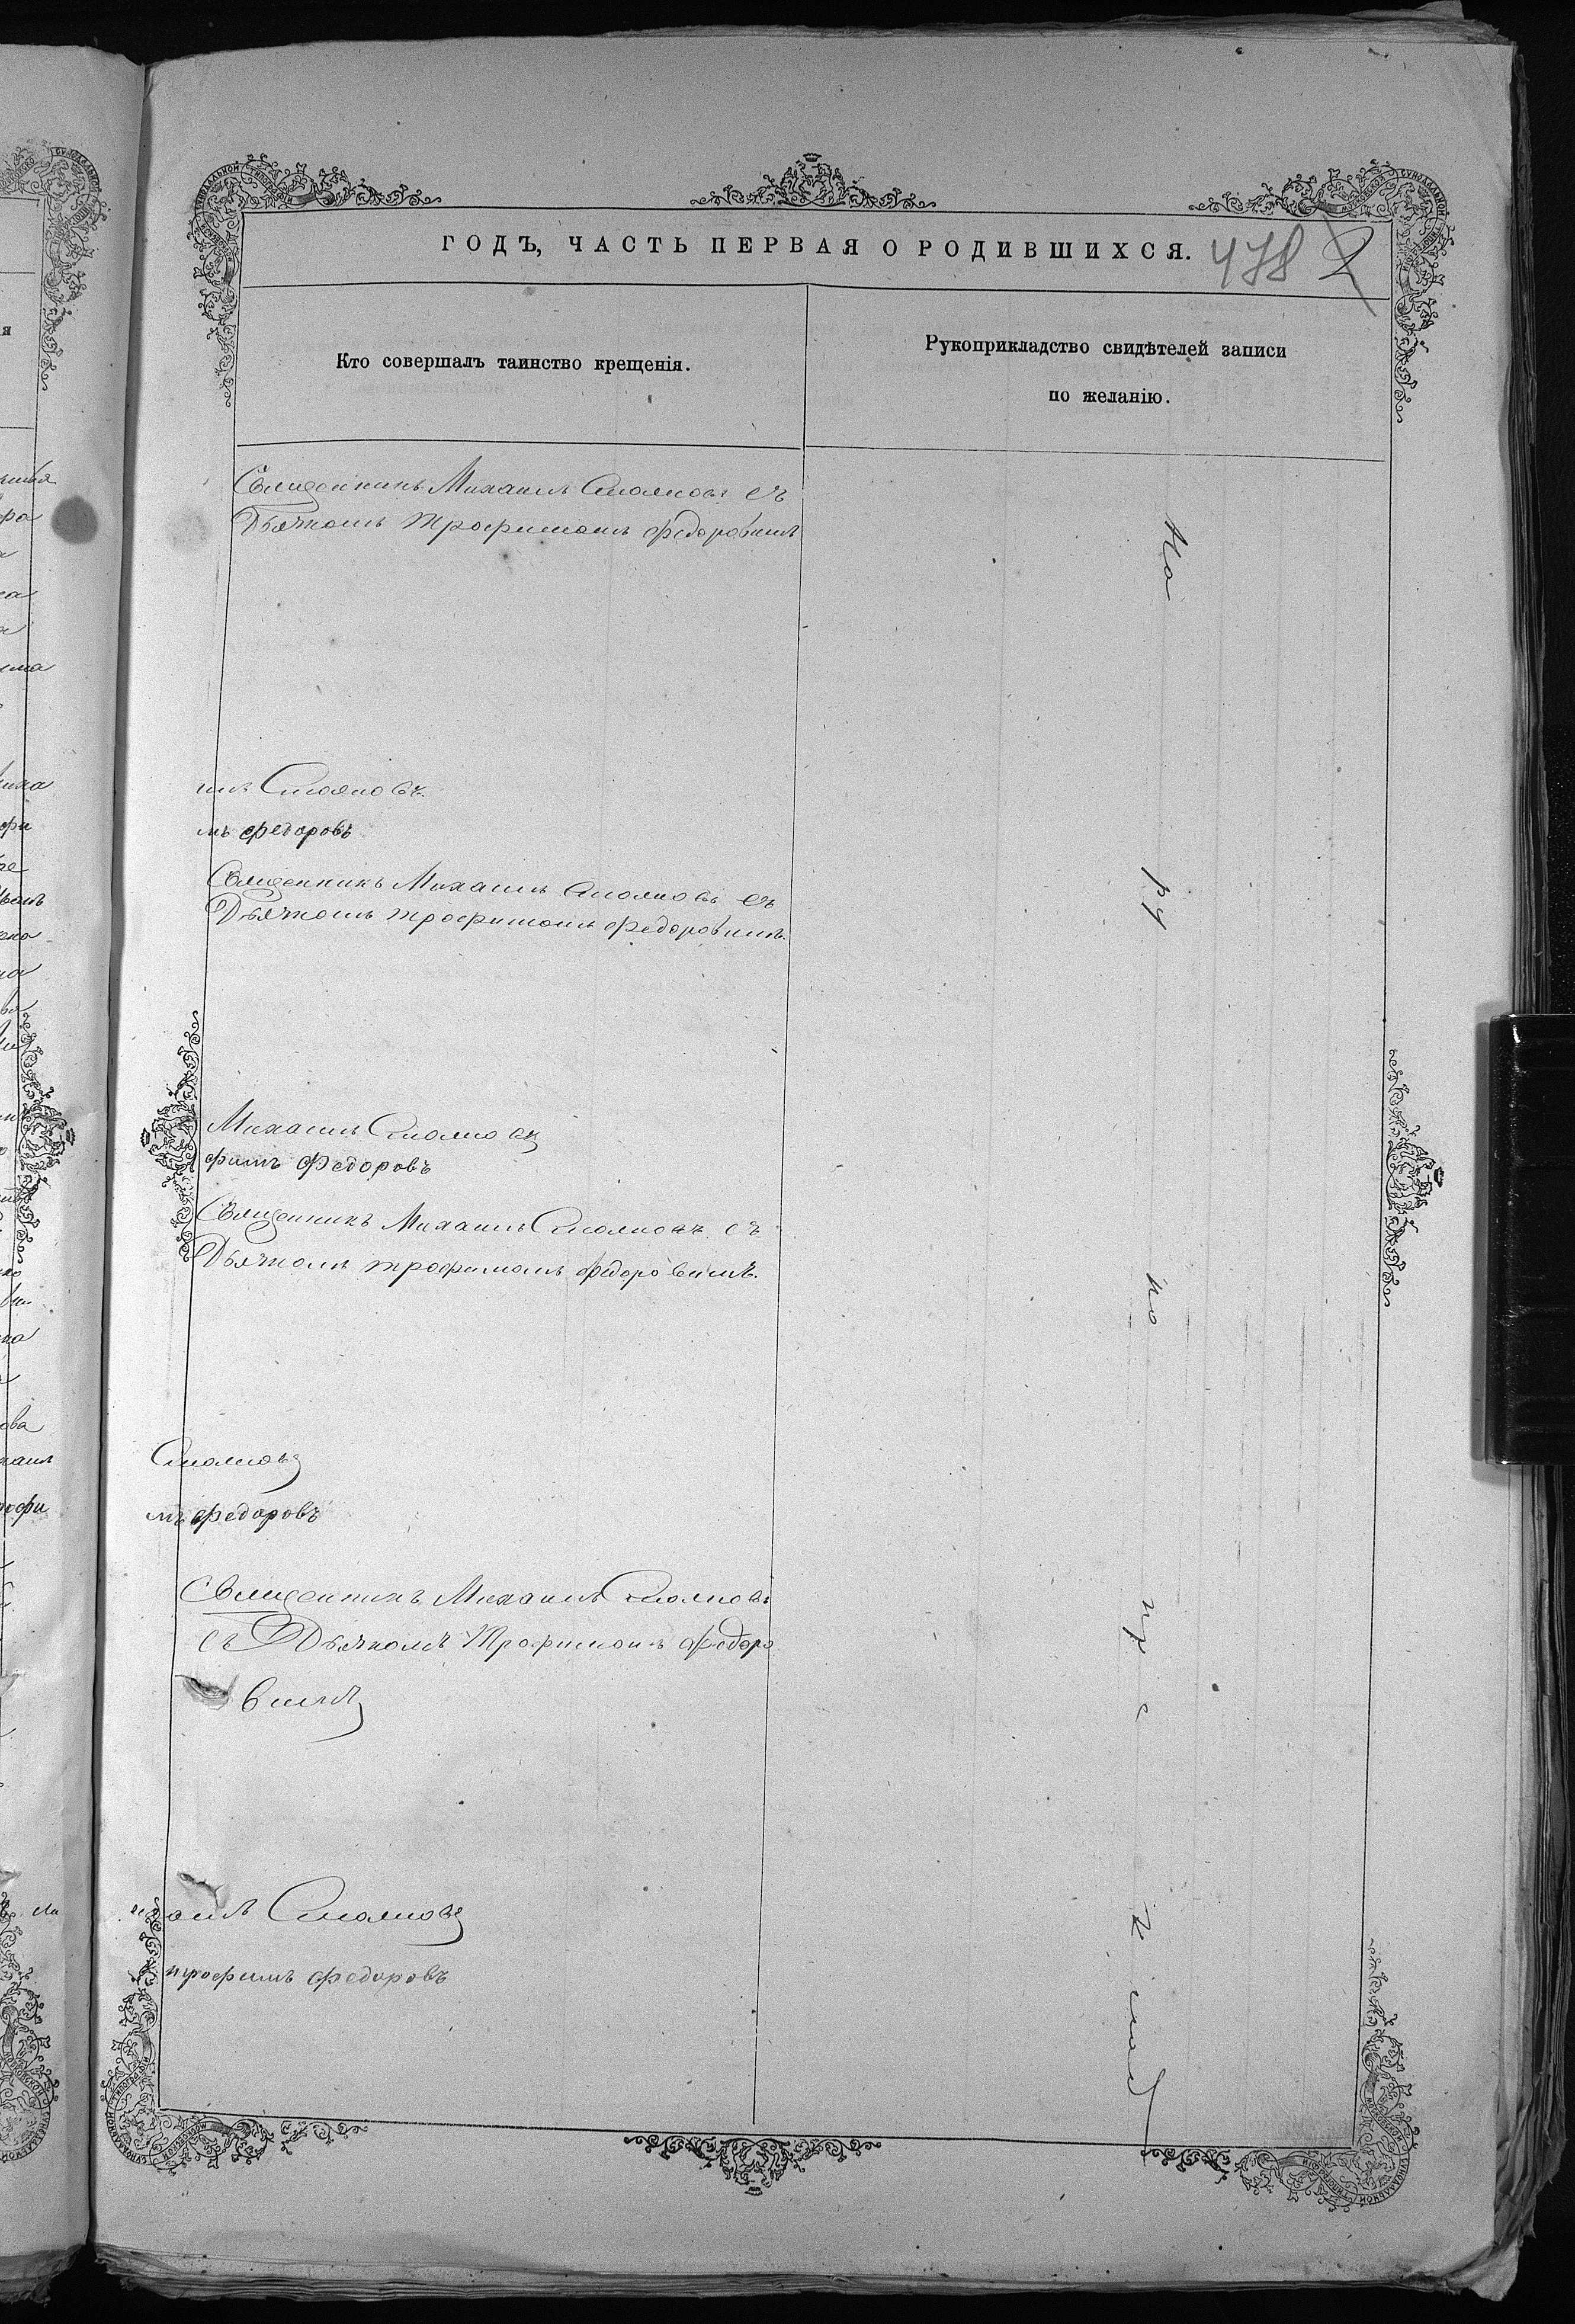 ГОДЪ, ЧАСТЬ ПЕРВАЯ О РОДИВШИХСЯ. 478 2
Кто совершалъ таинство крещенія.
Рукоприкладство свидѣтелей записи
по желанію.
Священникъ Михаилъ Стояновъ съ
Дьячкомъ Трофимомъ Федоровымъ
илъ Стояновъ.
мъ Федоровъ
Священникъ Михаилъ Стояновъ съ
Дьячкомъ Трофимомъ Федоровымъ.
Михаилъ Стояновъ
фимъ Федоровъ
Священникъ Михаилъ Стояновъ съ
Дьячкомъ Трофимомъ Федоровымъ.
Стояновъ
мъ Федоровъ
Священникъ Михаилъ Стояновъ
съ Дьячкомъ Трофимомъ Федоро
вымъ
хаилъ Стояновъ
трофимъ Федоровъ
ру
ко
пр